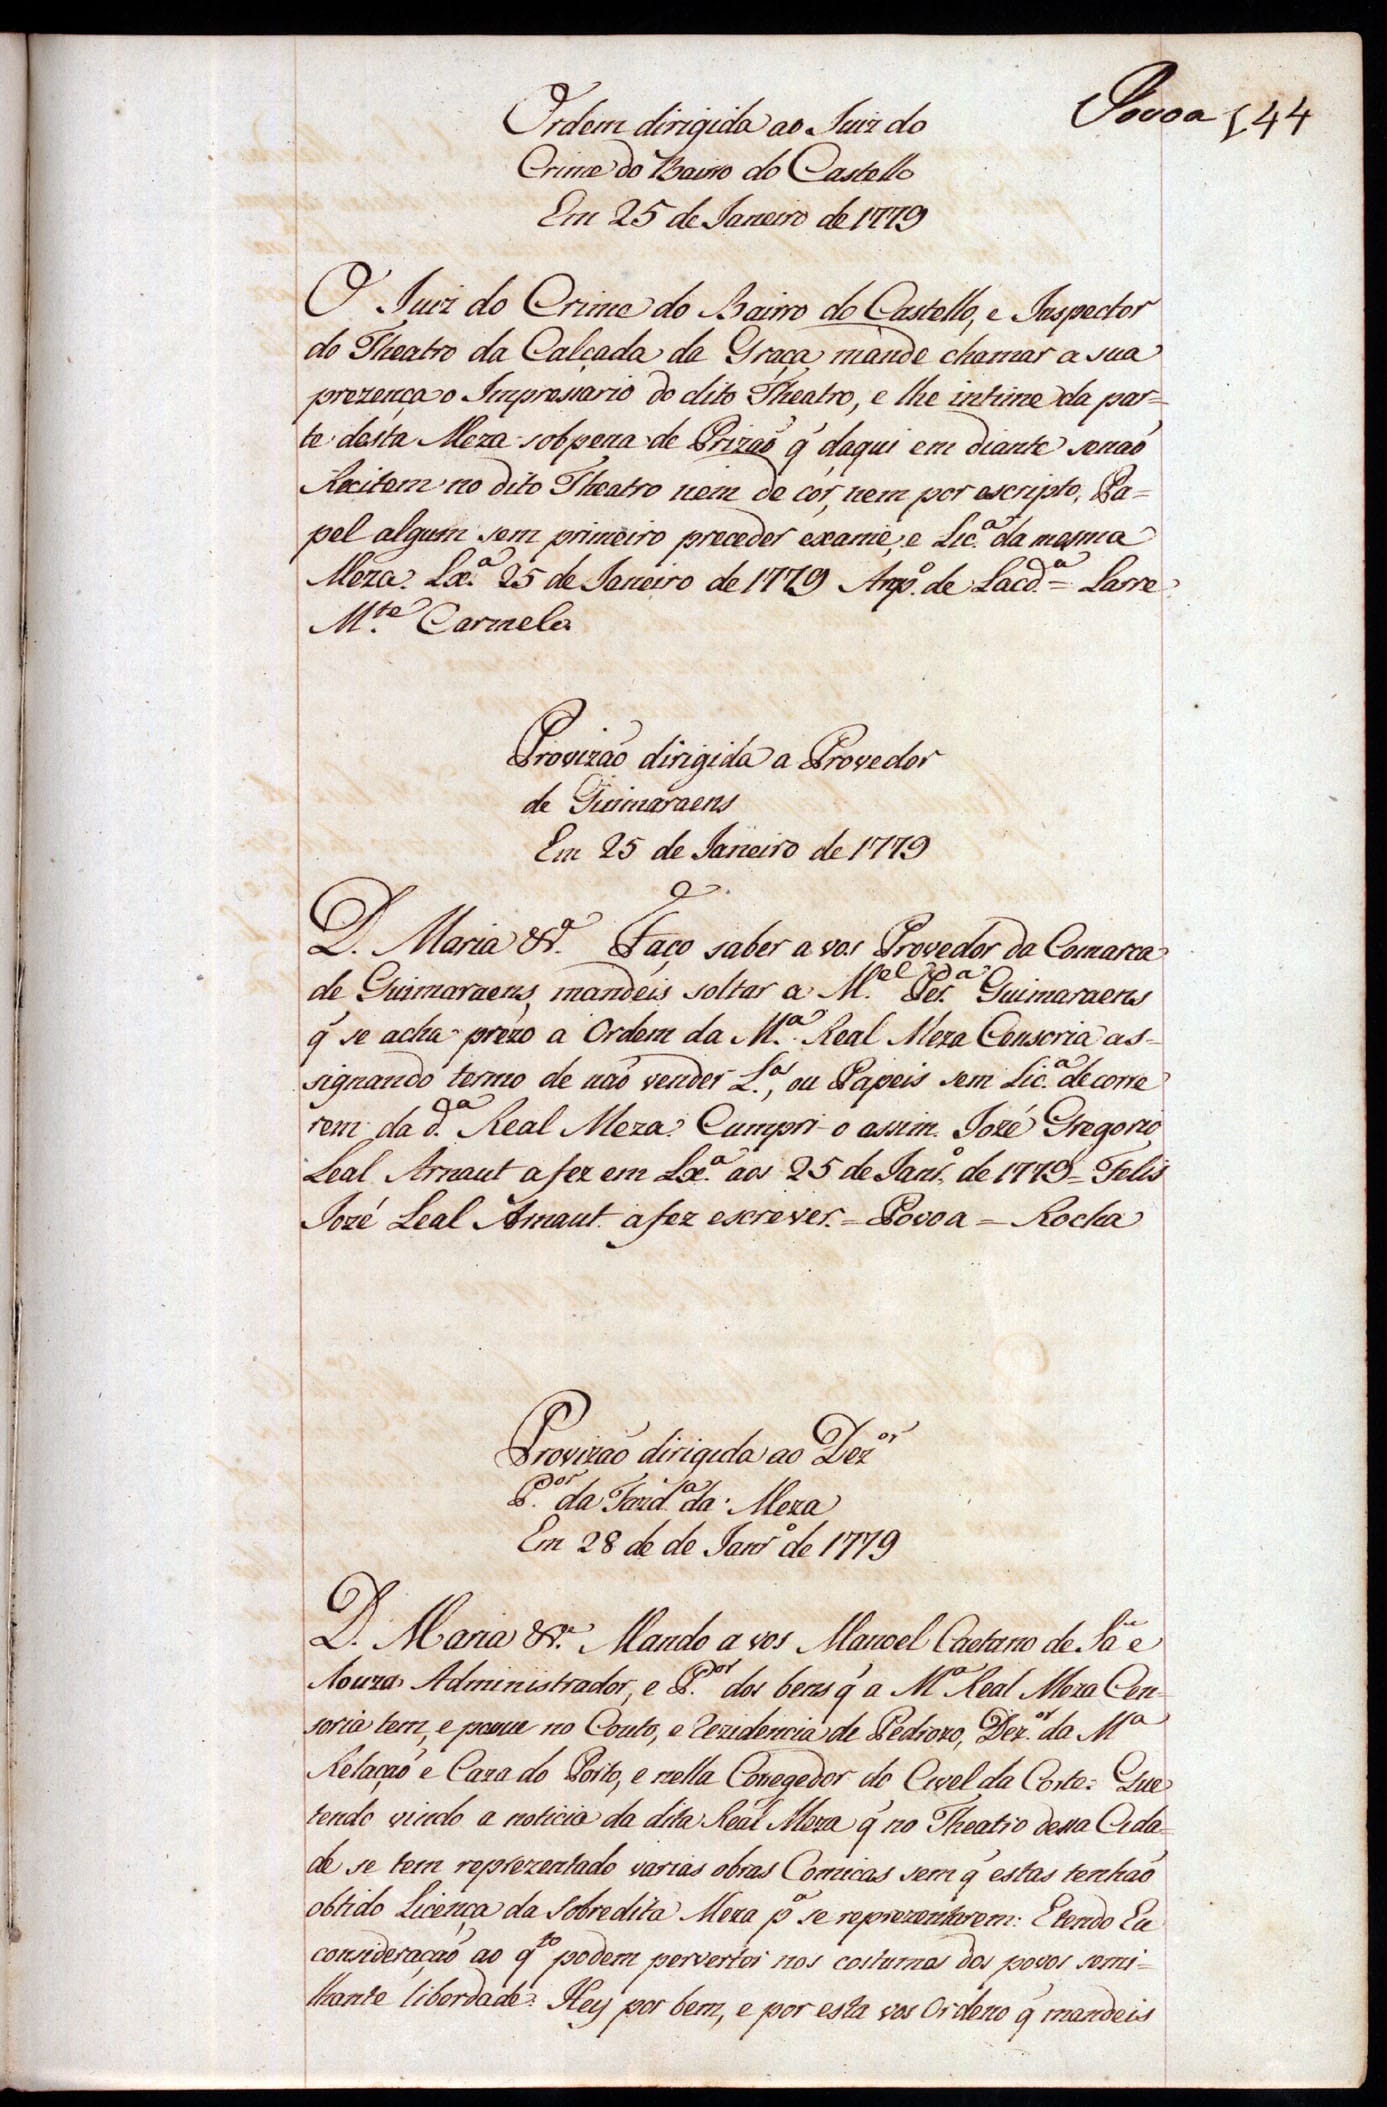 Povoa 144
Ordem dirigida ao Juiz do
Crime do Bairro do Castello
Em 25 de Janeiro de 1779
O Juiz do Crime do Bairro do Castello, e Inspector
do Theatro da Calçada da Graça, mande chamar a sua
prezença o Impressario do dito Theatro, e lhe intime da par=
te desta Meza sobpena de Prizaõ q̃ daqui em diante senaõ
Recitem no dito Theatro nem de cór, nem por escripto, Pa=
pel algum sem primeiro preceder exame, e Lic.ª da mesma
Meza. Lx.ª 25 de Janeiro de 1779 Arcp.º de Lacd.ª = Larre
M.te Carmelo
Provizaõ dirigida a Provedor
de Guimaraens
Em 25 de Janeiro de 1779
D. Maria &ª. Faço saber a vos Provedor da Comarca
de Guimaraens, mandeis soltar a M.el Per.ª Guimaraens
q̃ se acha prezo a Ordem da M.ª Real Meza Censoria as=
signando termo de naõ vender L.os, ou Papeis sem Lic.ª de corre
rem da d.ª Real Meza: Cumpri-o assim. Jozé Gregorio
Leal Arnaut a fez em Lx.ª aos 25 de Janr.º de 1779 = Felis
Jozé Leal Arnaut a fez escrever. = Povoa = Rocha
Provizaõ dirigida ao Dez.or
P.or da Fazd.ª da Meza
Em 28 de de Janr.º de 1779
D. Maria &ª. Mando a vos Manoel Caetano de Sá e
Souza Administrador, e P.or dos bens q̃ a M.ª Real Meza Cen=
soria tem, e possue no Couto, e rezidencia de Pedrozo, Dez.or da M.ª
Relaçaõ e Caza do Porto, e nella Corregedor do Civel da Corte: Que
tendo vindo a noticia da dita Real Meza q̃ no Theatro dessa Cida=
de se tem reprezentado varias obras Comicas sem q̃ estas tenhaõ
obtido Licença da Sobredita Meza p.ª se reprezentarem: E tendo Eu
consideraçaõ ao q.to podem perverter nos costumes dos povos semi=
lhante liberdade: Hey por bem, e por esta vos Ordeno q̃ mandeis